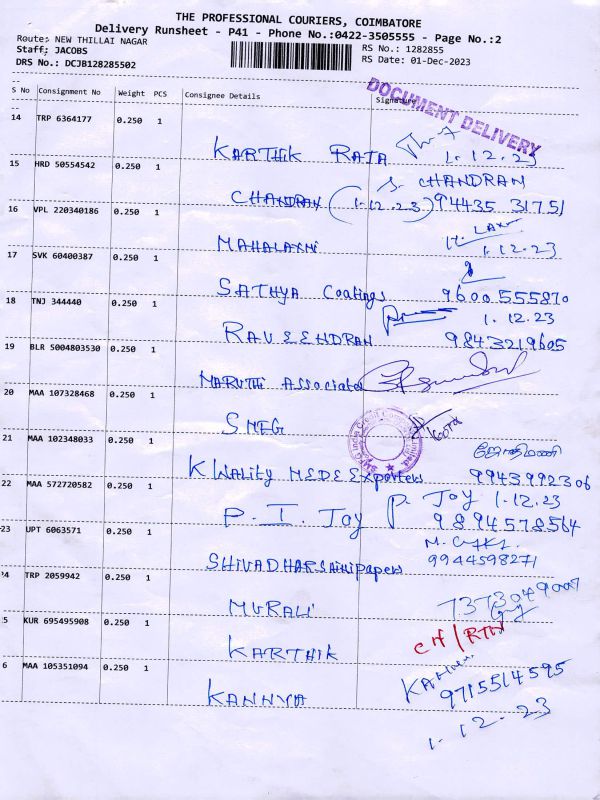 THE PROFESSIONAL COURIERS, COIMBATORE
Delivery Runsheet - P41 - Phone No.:0422-3505555 - Page No.:2
Route: NEW THILLAI NAGAR
Staff: JACOBS
DRS No.: DCJB128285502
RS No.: 1282855
RS Date: 01-Dec-2023
S No Consignment No Weight PCS Consignee Details Signature
DOCUMENT DELIVERY
14 TRP 6364177 0.250 1
KARTHIK RAJA 1.12.23
15 HRD 50554542 0.250 1
S. CHANDRAN
CHANDRAN (1.12.23) 94435 31751
16 VPL 220340186 0.250 1
MAHALAXMI 1.12.23
17 SVK 60400387 0.250 1
SATHYA Coatings 9600555870
18 TNJ 344440 0.250 1
1.12.23
RAVEENDRAN 9843219605
19 BLR 5004803530 0.250 1
MARUTHI Associates
20 MAA 107328468 0.250 1
SMEG
21 MAA 102348033 0.250 1
ஜோதிமணி
KWALITY MEDE Exporters 9943992306
22 MAA 572720582 0.250 1
P. JOY 1.12.23
P. I. Joy 9894578564
23 UPT 6063571 0.250 1
SHIVADHARSHINI papers 9944598271
24 TRP 2059942 0.250 1
MURALI 7373049007
5 KUR 695495908 0.250 1
KARTHIK CH/RTN
6 MAA 105351094 0.250 1
KANNYA 9715514595
1.12.23